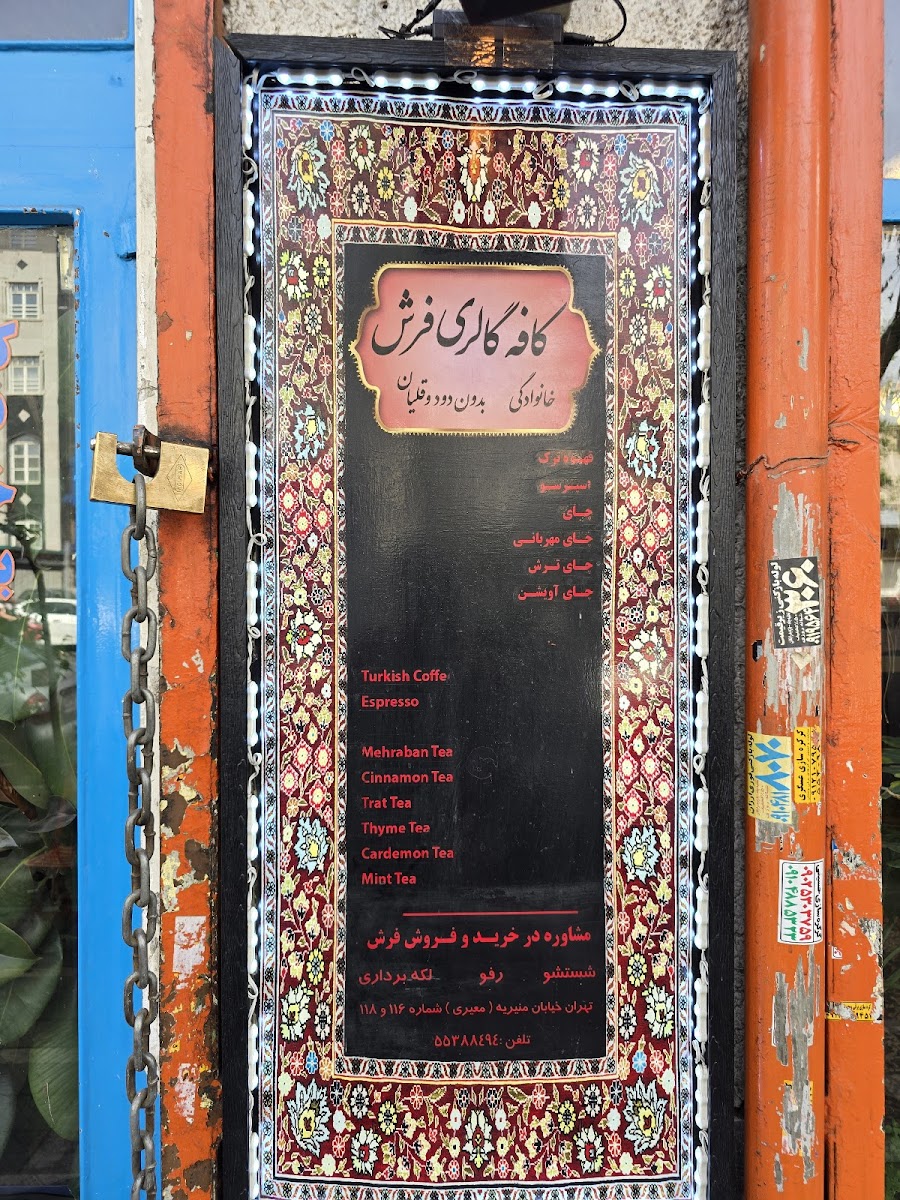 کافه گالری فرش
خانوادگی بدون دود و قلیان
قهوه ترک
اسپرسو
چای
چای مهربانی
چای ترش
چای آویشن
Turkish Coffe
Espresso
Mehraban Tea
Cinnamon Tea
Trat Tea
Thyme Tea
Cardemon Tea
Mint Tea
مشاوره در خرید و فروش فرش
شستشو رفو لکه برداری
تهران خیابان منیریه ( معیری ) شماره ۱۱۶ و ۱۱۸
تلفن :۵۵۳۸۸۴۹۴